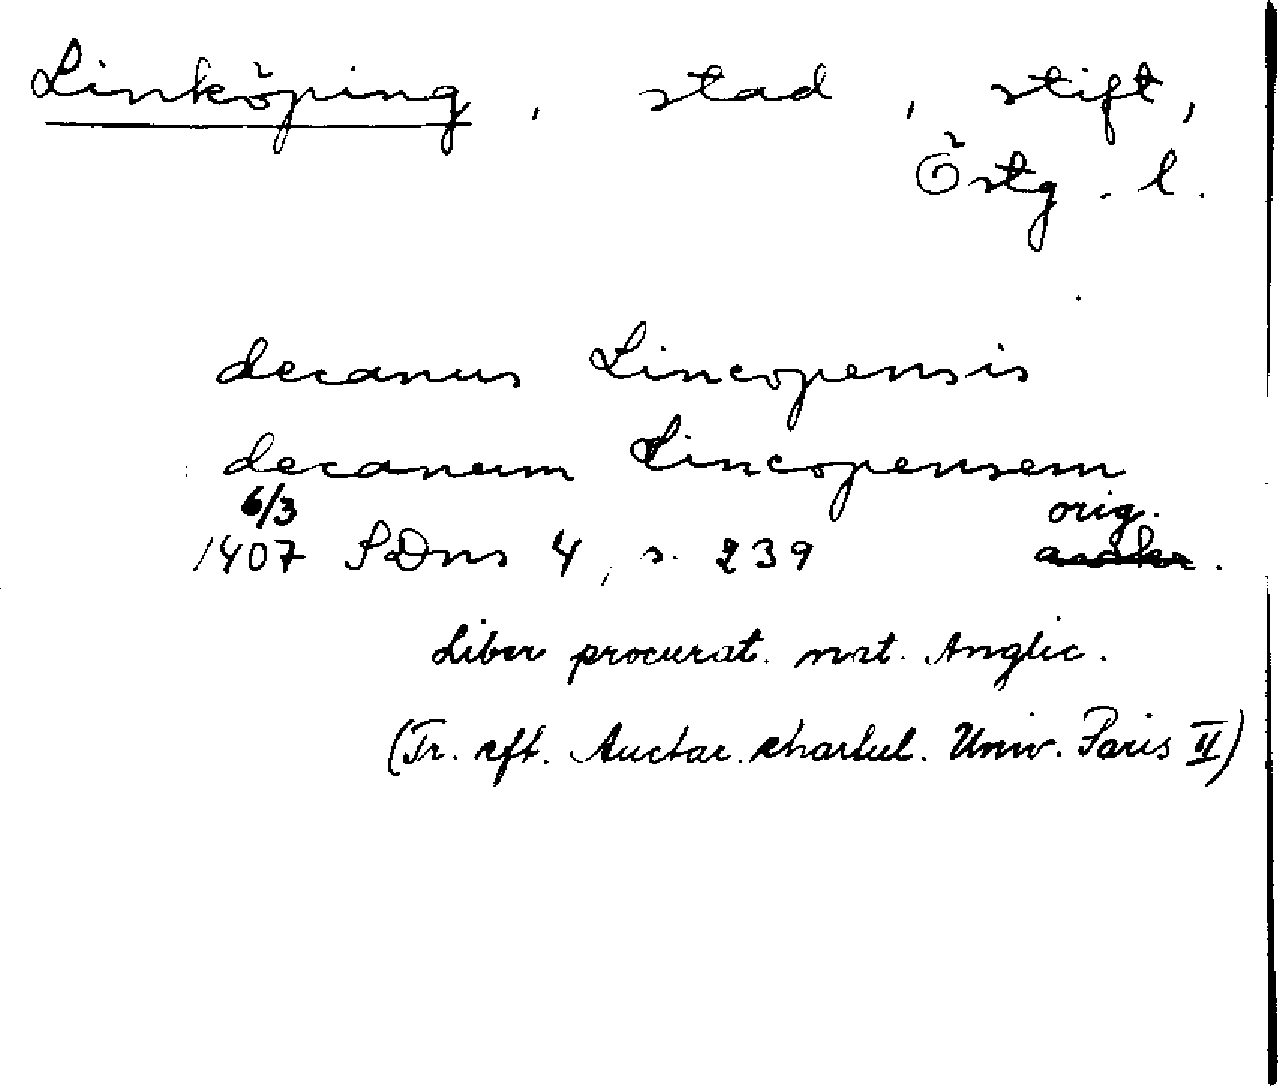 Linköping, stad, stift,
Östg. l.
decanus Lincopensis
decanum Lincopensem
6/3 orig.
1407 SDns 4, s. 239
Liber procurat. nat. Anglic.
(Tr. eft. Auctar. chartul. Univ. Paris II)